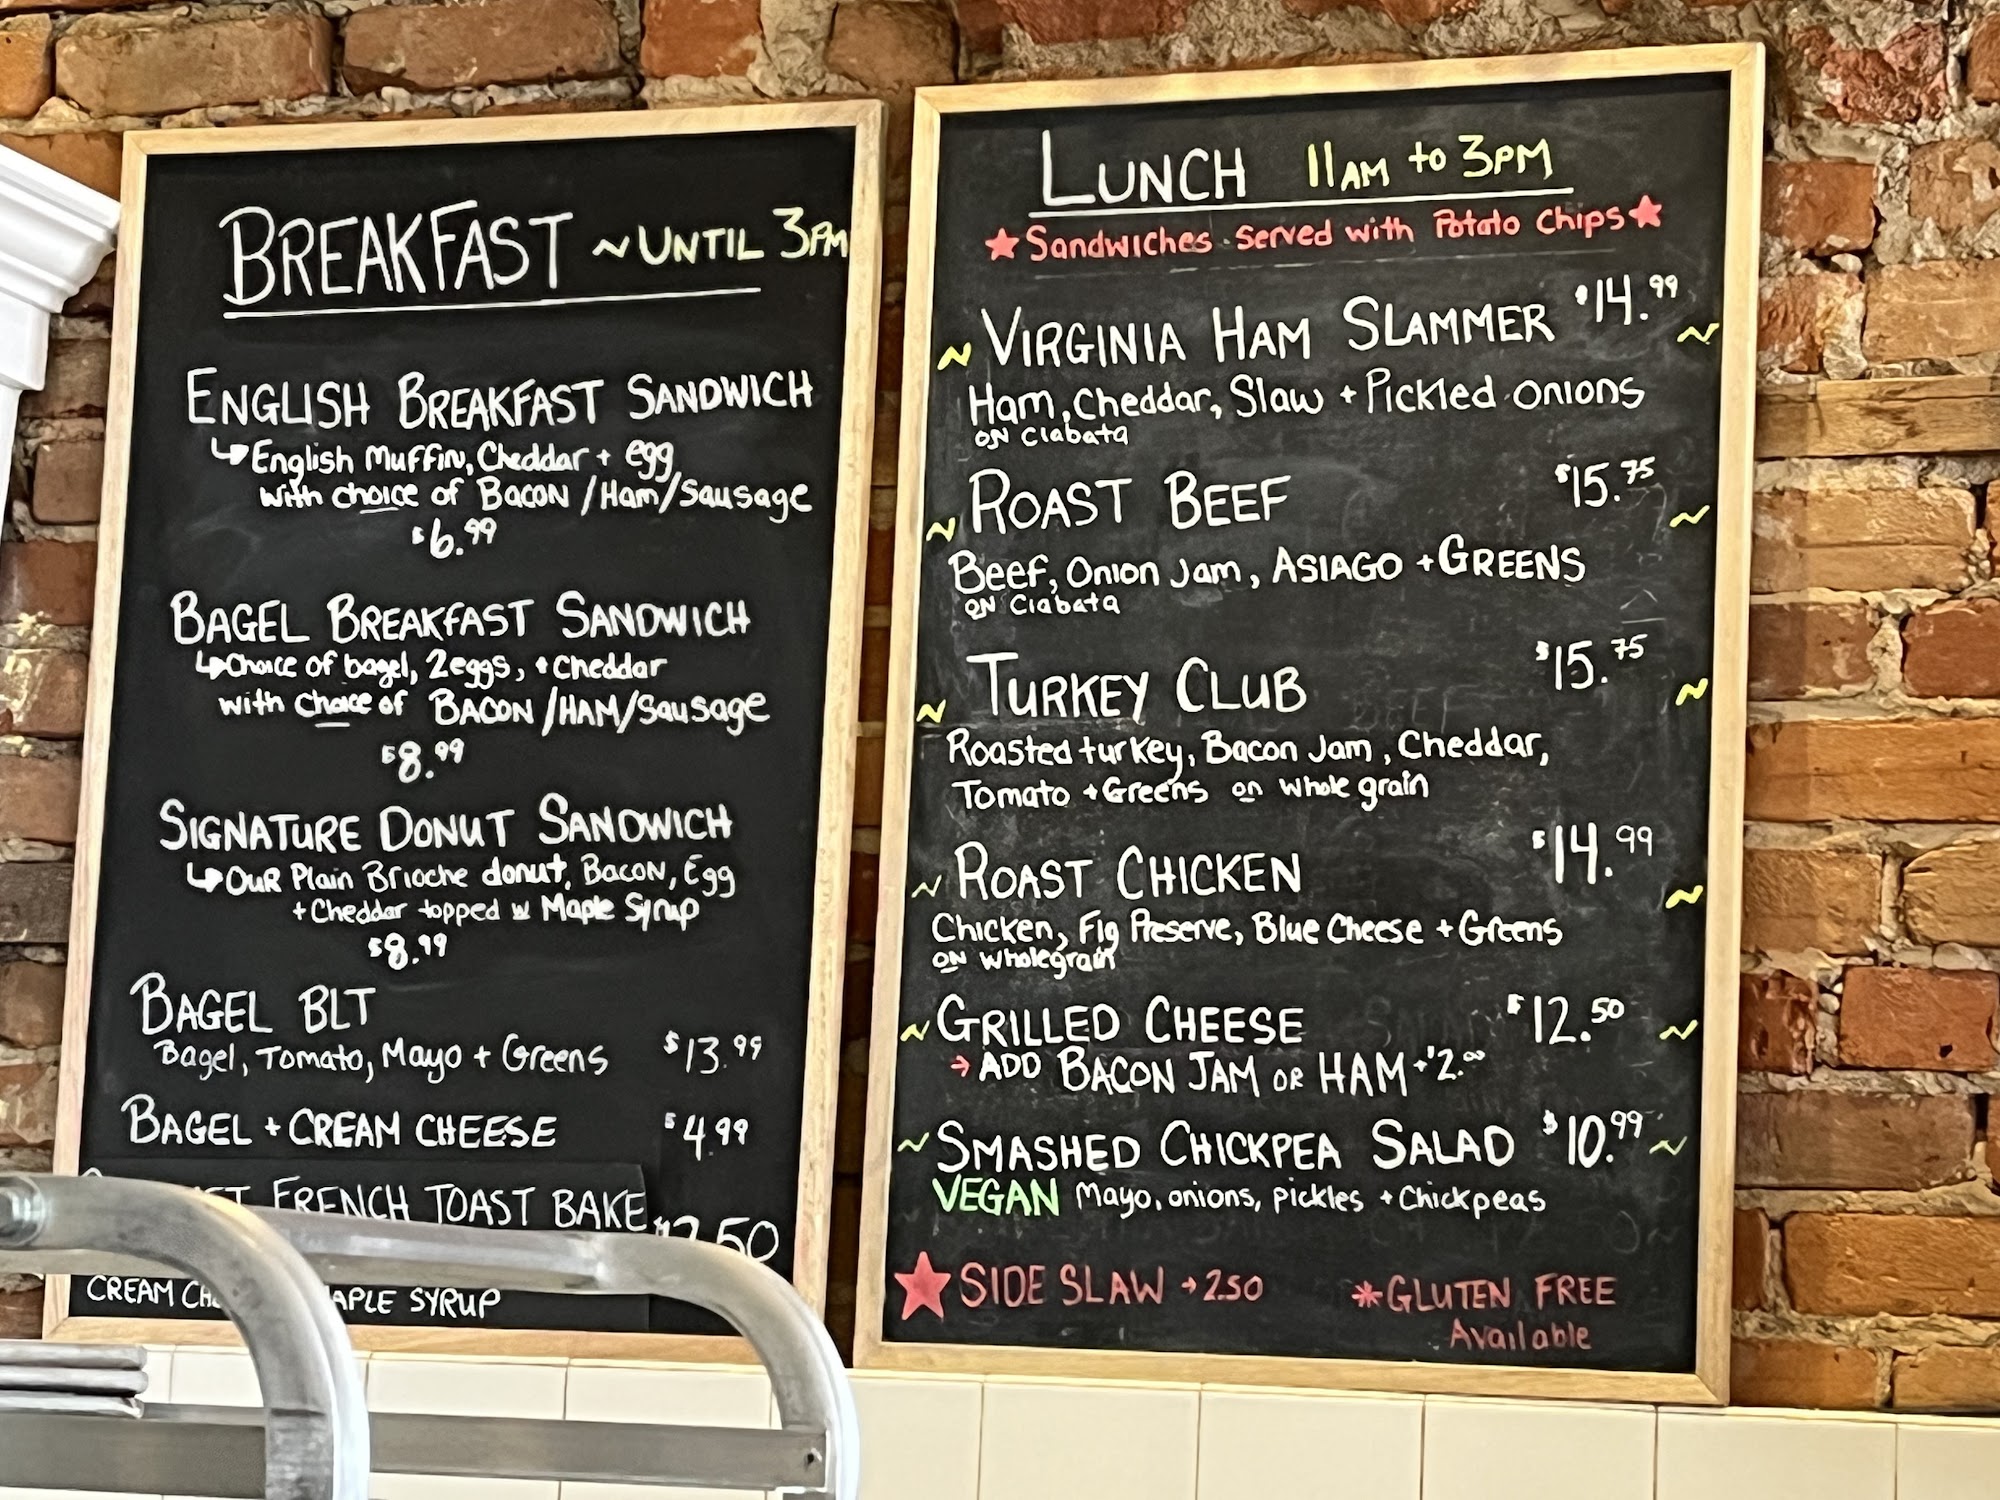 BREAKFAST ~UNTIL 3PM
ENGLISH BREAKFAST SANDWICH
English Muffin, Cheddar + egg
with choice of BACON/Ham/Sausage
$6.99
BAGEL BREAKFAST SANDWICH
Choice of bagel, 2eggs, + cheddar
with choice of BACON/HAM/Sausage
$8.99
SIGNATURE DONUT SANDWICH
OUR Plain Brioche donut, BACON, Egg
+ Cheddar topped w Maple Syrup
$8.99
BAGEL BLT
Bagel, Tomato, Mayo + Greens $13.99
BAGEL + CREAM CHEESE $4.99
FRENCH TOAST BAKE
CREAM SYRUP
LUNCH 11AM to 3PM
★ Sandwiches served with Potato Chips ★
~ VIRGINIA HAM SLAMMER $14.99 ~
Ham, Cheddar, Slaw + Pickled onions
ON Ciabata
~ ROAST BEEF $15.75 ~
Beef, Onion Jam, ASIAGO + GREENS
ON Ciabata
~ TURKEY CLUB $15.75 ~
Roasted turkey, Bacon Jam, Cheddar,
Tomato + Greens on whole grain
~ ROAST CHICKEN $14.99 ~
Chicken, Fig Preserve, Blue Cheese + Greens
ON wholegrain
~ GRILLED CHEESE $12.50 ~
→ ADD BACON JAM OR HAM +$2.00
~ SMASHED CHICKPEA SALAD $10.99 ~
VEGAN Mayo, onions, pickles + Chickpeas
★ SIDE SLAW → 2.50
*GLUTEN FREE
Available